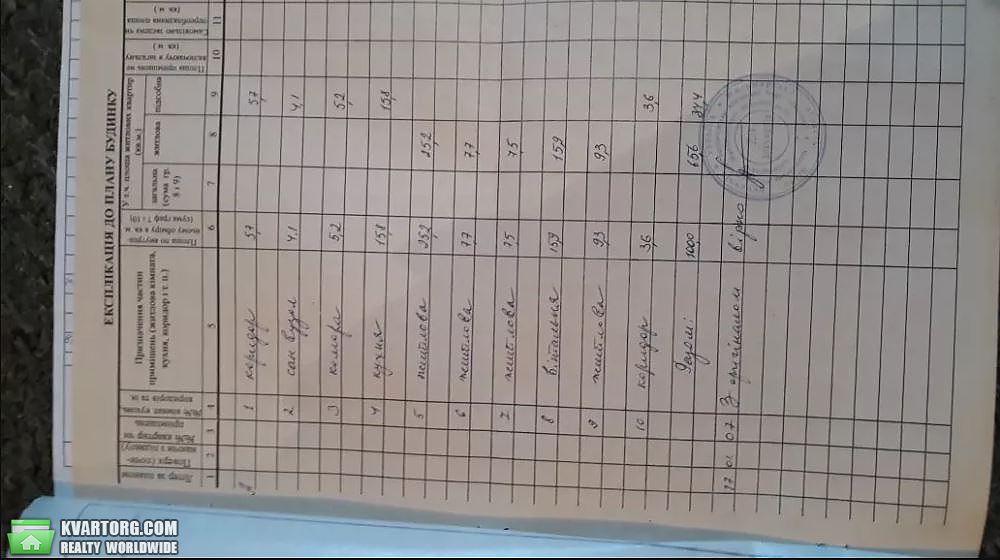 ЕКСПЛІКАЦІЯ ДО ПЛАНУ БУДИНКУ
Літер за планом
Поверх (почи-
наючи з підвалу)
№№ квартир чи
приміщень
№№ кімнат, кухонь,
коридорів та ін.
Призначення частин
приміщень (житлова кімната,
кухня, коридор і т. п.)
Площа по внутріш-
ньому обміру в кв. м.
(сума граф 7 і 10)
У т.ч. площа житлових квартир
(кв.м.)
загальна
(сума гр.
8 і 9)
житлова
підсобна
Площа приміщень не
включаючи в загальну
(кв. м )
Самовільно зведена чи
переобладнана площа
(кв. м )
1 2 3 4 5 6 7 8 9 10 11
1 коридор 5,7 5,7
2 сан вузол 4,1 4,1
3 комора 5,2 5,2
4 кухня 15,8 15,8
5 житлова 25,2 25,2
6 житлова 7,7 7,7
7 житлова 7,5 7,5
8 вітальня 15,9 15,9
9 житлова 9,3 9,3
10 коридор 3,6 3,6
Разом: 100,0 65,6 34,4
17 01 07 З оригіналом вірно
KVARTORG.COM
REALTY WORLDWIDE